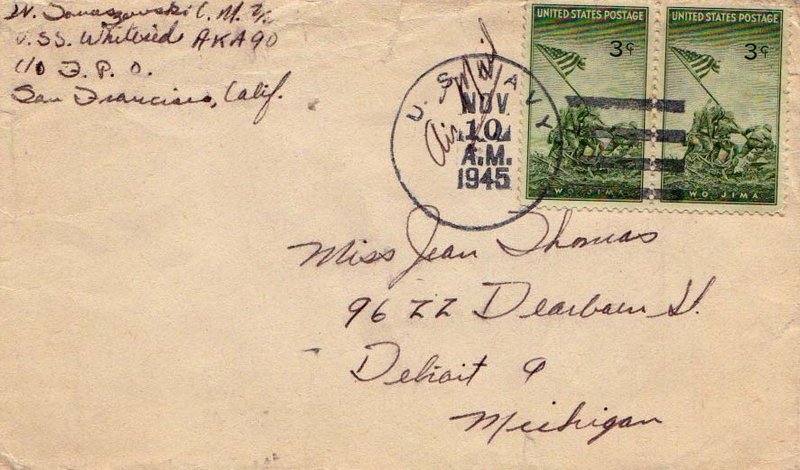 W. Tomaszewski C. M. 2/c
U.S.S. Whitfield AKA 90
c/o F. P. O.
San Francisco, Calif.
Air Mail
U. S. NAVY
NOV
10
A.M.
1945
UNITED STATES POSTAGE
3¢
IWO JIMA
UNITED STATES POSTAGE
3¢
IWO JIMA
Miss Jean Thomas
9622 Dearborn St.
Detroit 9
Michigan